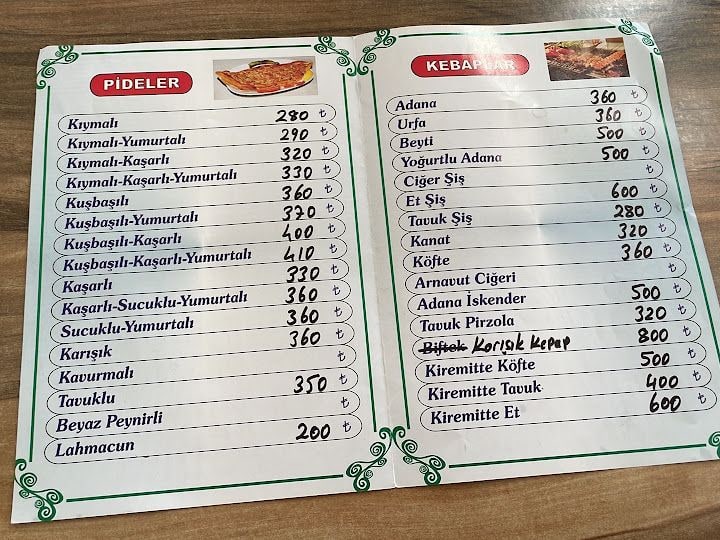 PİDELER
Kıymalı 280 ₺
Kıymalı-Yumurtalı 290 ₺
Kıymalı-Kaşarlı 320 ₺
Kıymalı-Kaşarlı-Yumurtalı 330 ₺
Kuşbaşılı 360 ₺
Kuşbaşılı-Yumurtalı 370 ₺
Kuşbaşılı-Kaşarlı 400 ₺
Kuşbaşılı-Kaşarlı-Yumurtalı 410 ₺
Kaşarlı 330 ₺
Kaşarlı-Sucuklu-Yumurtalı 360 ₺
Sucuklu-Yumurtalı 360 ₺
Karışık 360 ₺
Kavurmalı ₺
Tavuklu 350 ₺
Beyaz Peynirli ₺
Lahmacun 200 ₺
KEBAPLAR
Adana 360 ₺
Urfa 360 ₺
Beyti 500 ₺
Yoğurtlu Adana 500 ₺
Ciğer Şiş ₺
Et Şiş 600 ₺
Tavuk Şiş 280 ₺
Kanat 320 ₺
Köfte 360 ₺
Arnavut Ciğeri ₺
Adana İskender 500 ₺
Tavuk Pirzola 320 ₺
Biftek Karışık Kepap 800 ₺
Kiremitte Köfte 500 ₺
Kiremitte Tavuk 400 ₺
Kiremitte Et 600 ₺